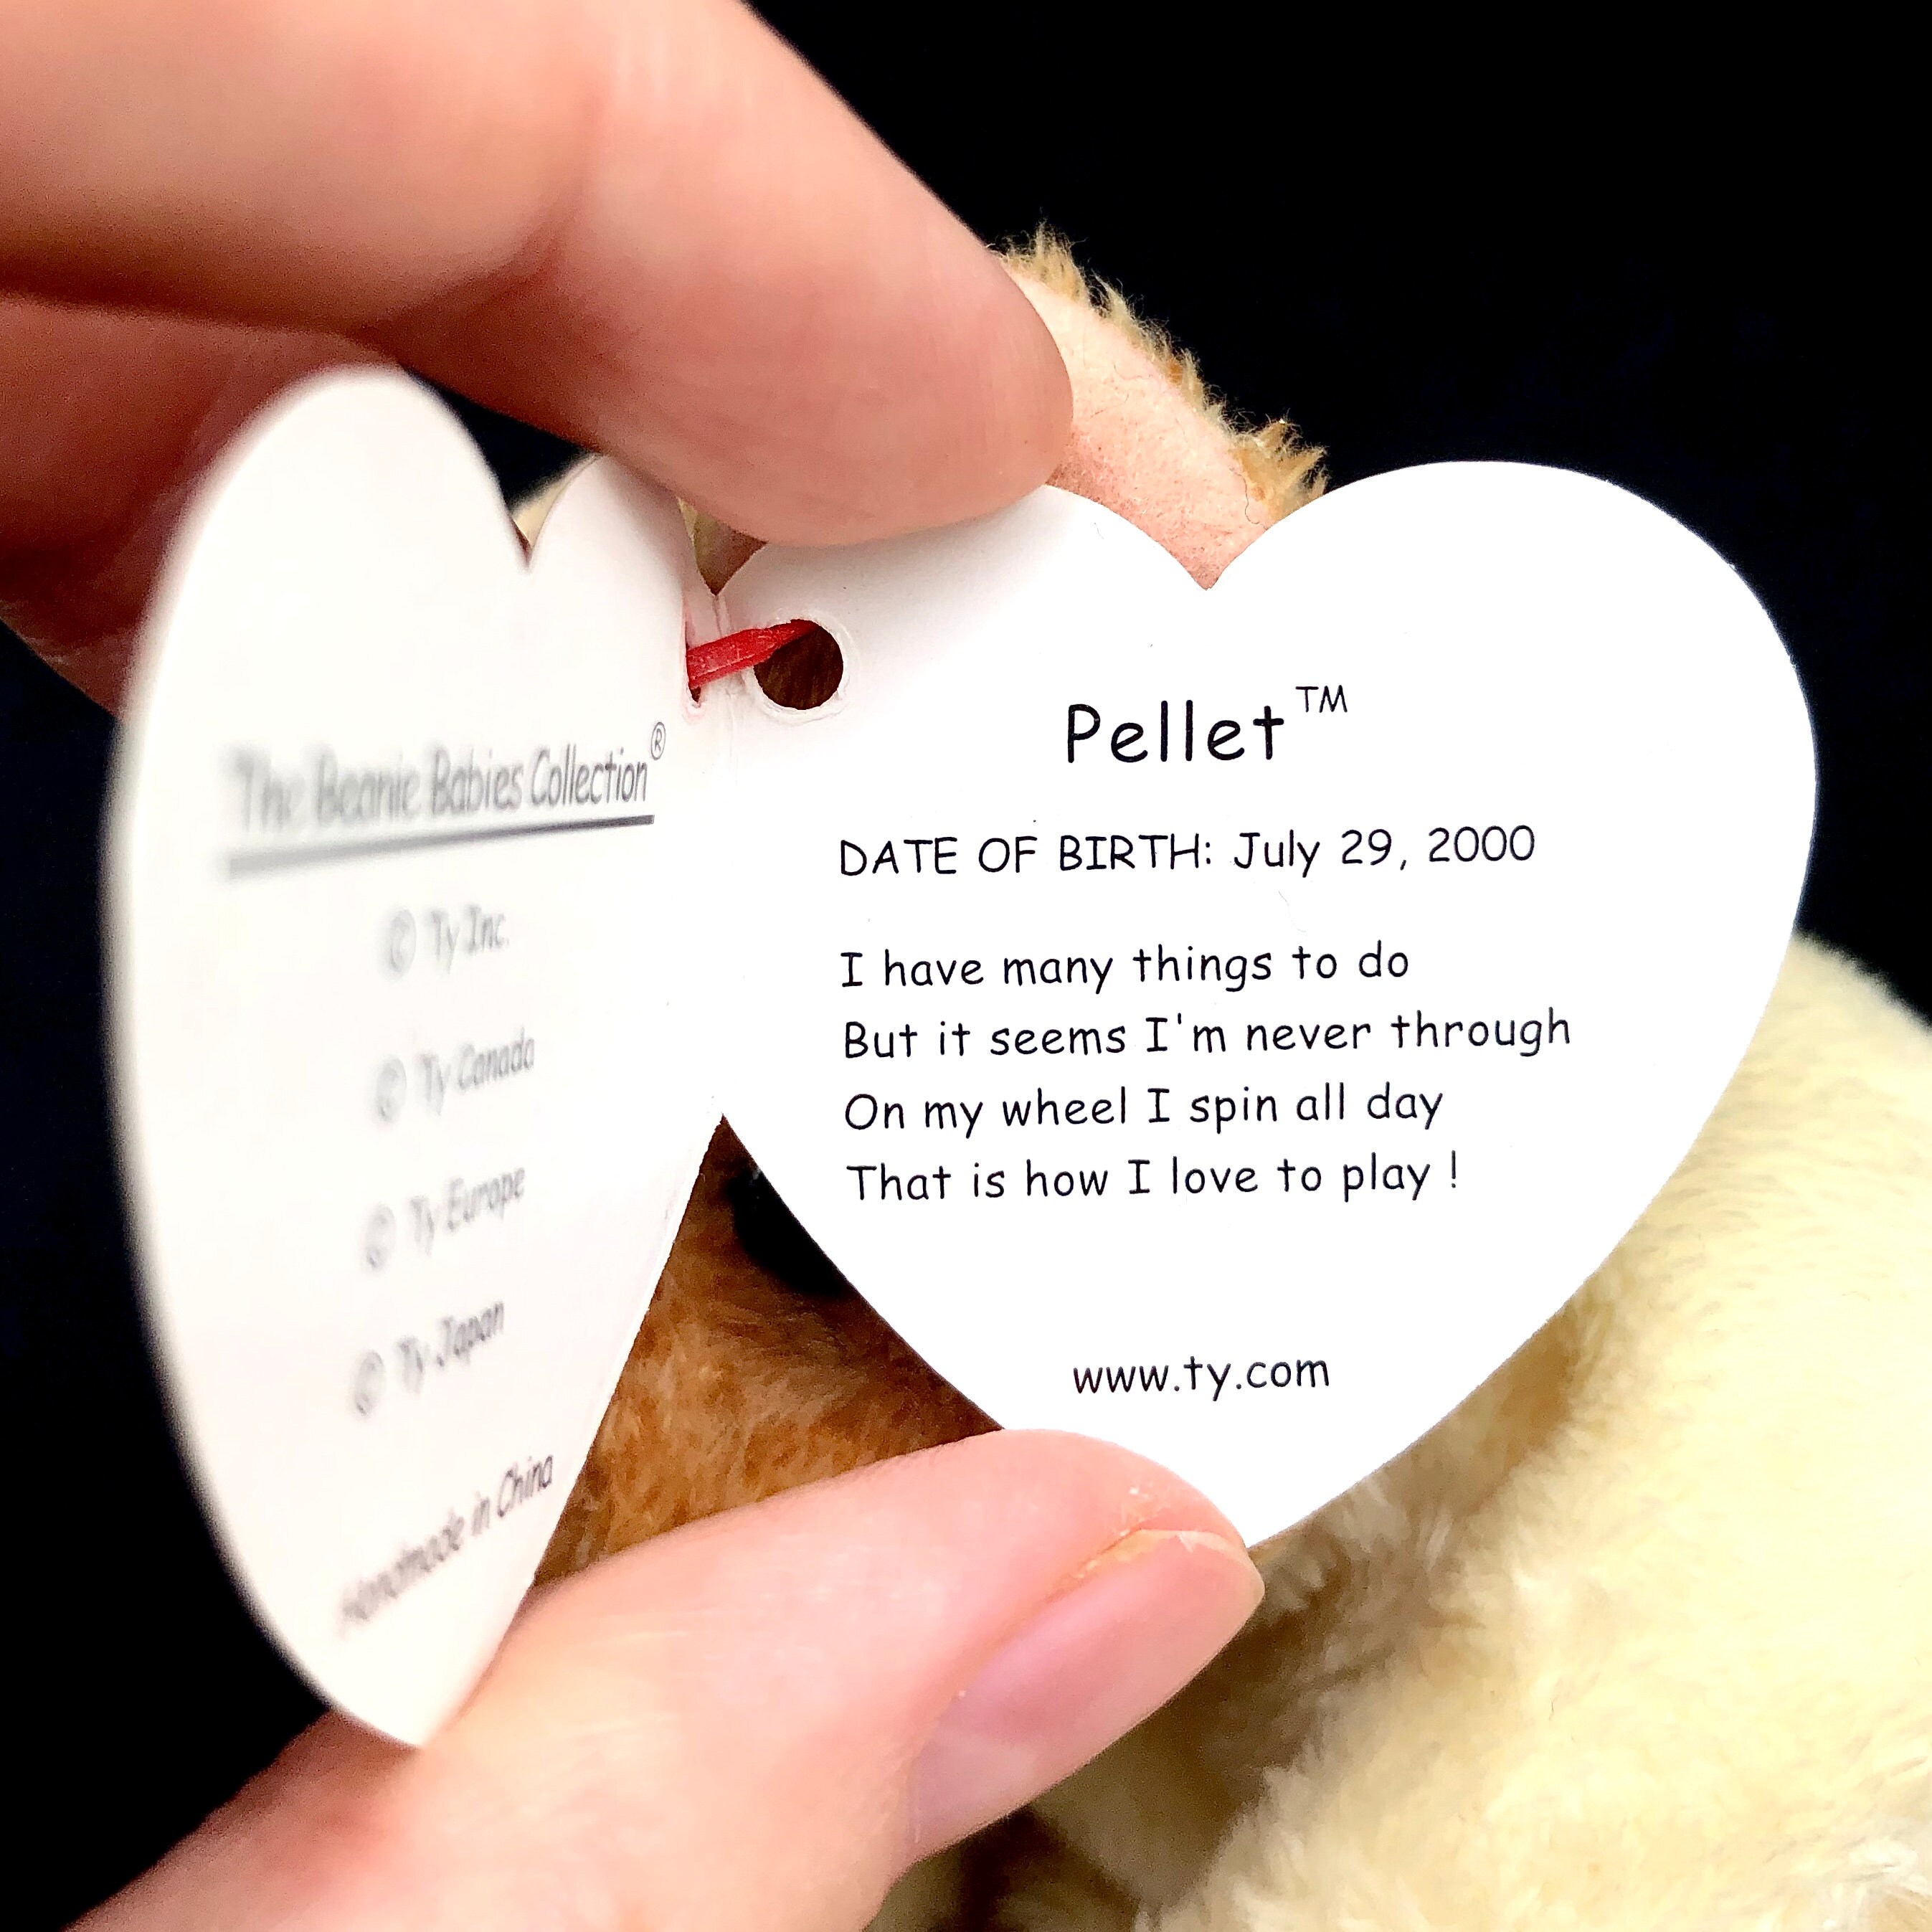 The Beanie Babies Collection®
© Ty Inc.
© Ty Canada
© Ty Europe
© Ty Japan
Handmade in China
Pellet™
DATE OF BIRTH: July 29, 2000
I have many things to do
But it seems I'm never through
On my wheel I spin all day
That is how I love to play !
www.ty.com